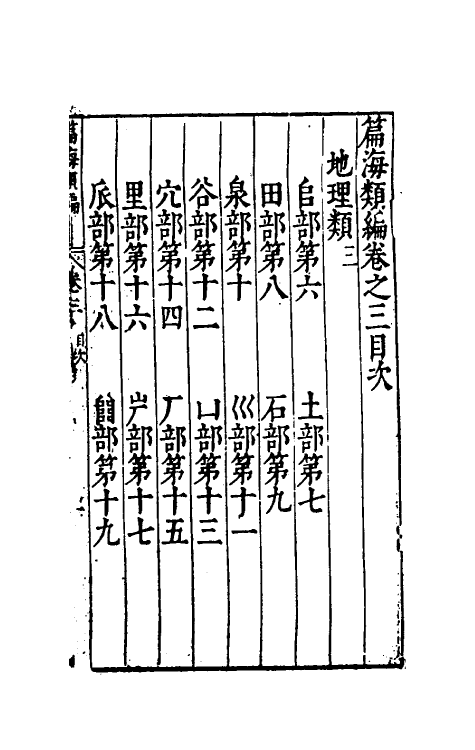 篇海類編卷之三目次
地理類三
𨸏部第六　土部第七
田部第八　石部第九
泉部第十　巛部第十一
谷部第十二　凵部第十三
穴部第十四　厂部第十五
里部第十六　屵部第十七
𠂢部第十八　𨺅部第十九
篇海類編　卷之三　目次